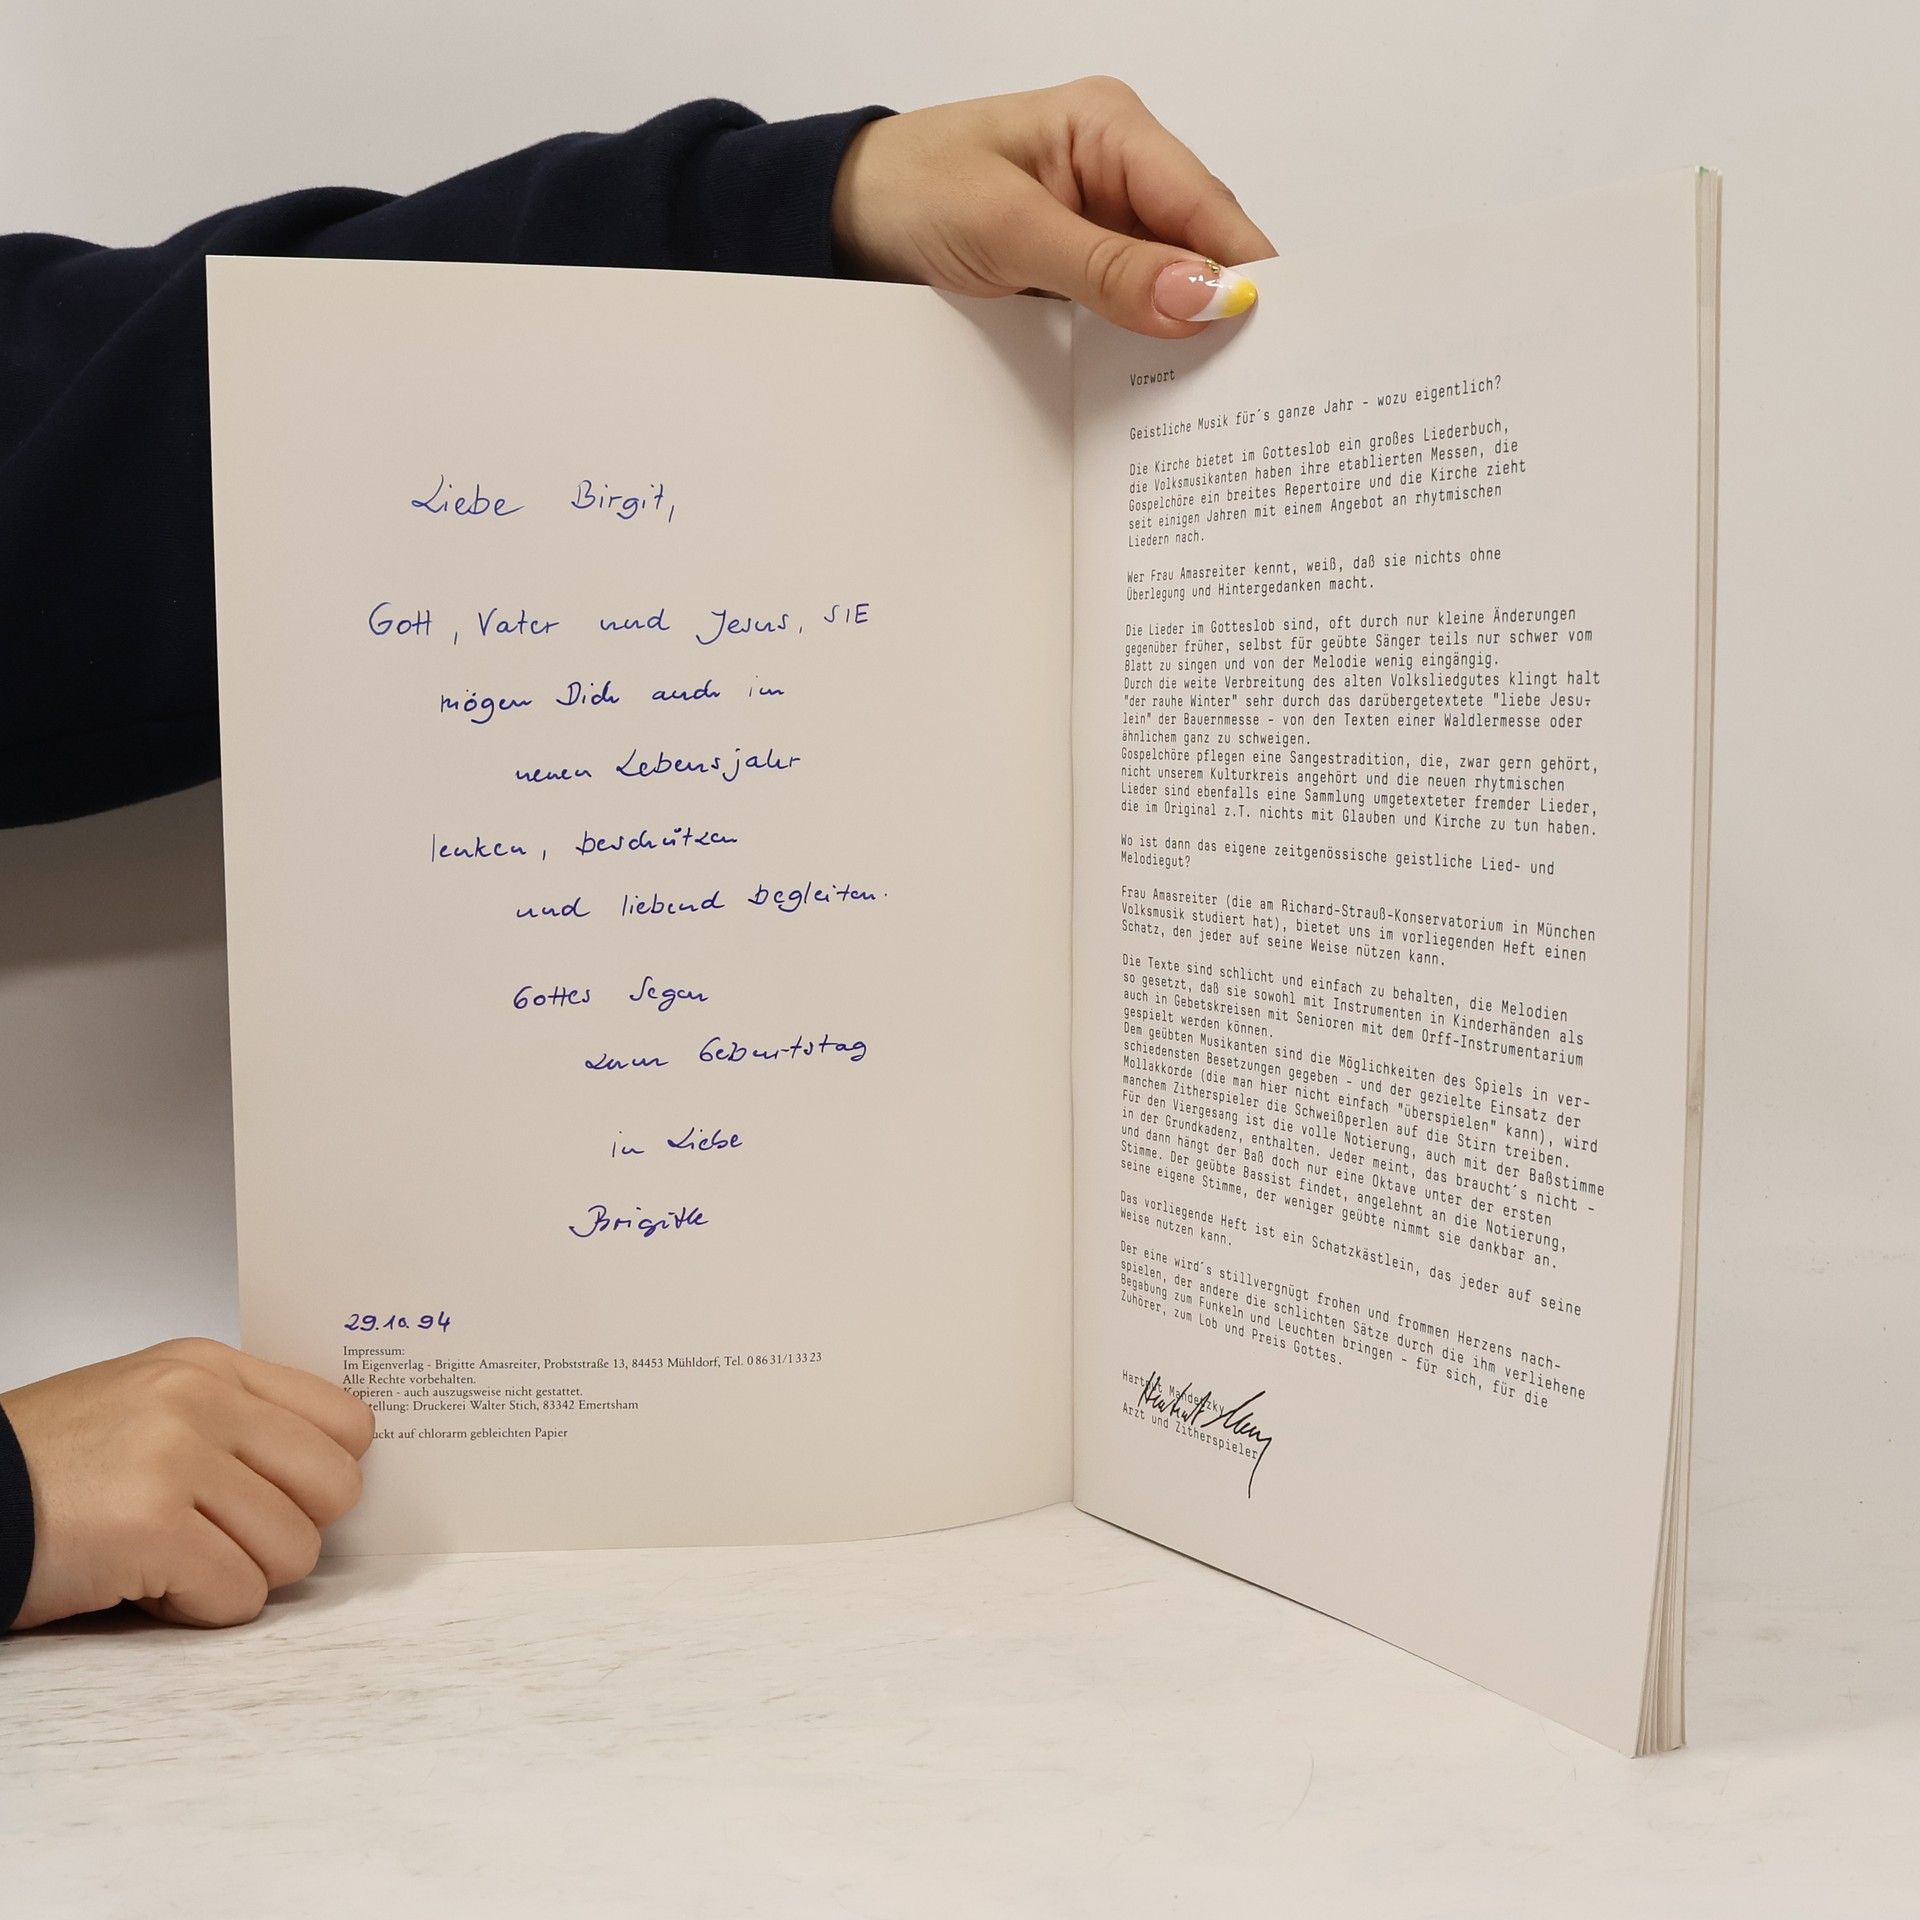 Liebe Birgit,
Gott, Vater und Jesus, SIE
mögen Dich auch im
neuen Lebensjahr
lenken, beschützen
und liebend begleiten.
Gottes Segen
zum Geburtstag
in Liebe
Brigitte
29.10.94
Impressum:
Im Eigenverlag - Brigitte Amasreiter, Probststraße 13, 84453 Mühldorf, Tel. 08631/13323
Alle Rechte vorbehalten.
Kopieren - auch auszugsweise nicht gestattet.
tellung: Druckerei Walter Stich, 83342 Emertsham
uckt auf chlorarm gebleichten Papier
Vorwort
Geistliche Musik für´s ganze Jahr - wozu eigentlich?
Die Kirche bietet im Gotteslob ein großes Liederbuch,
die Volksmusikanten haben ihre etablierten Messen, die
Gospelchöre ein breites Repertoire und die Kirche zieht
seit einigen Jahren mit einem Angebot an rhytmischen
Liedern nach.
Wer Frau Amasreiter kennt, weiß, daß sie nichts ohne
Überlegung und Hintergedanken macht.
Die Lieder im Gotteslob sind, oft durch nur kleine Änderungen
gegenüber früher, selbst für geübte Sänger teils nur schwer vom
Blatt zu singen und von der Melodie wenig eingängig.
Durch die weite Verbreitung des alten Volksliedgutes klingt halt
"der rauhe Winter" sehr durch das darübergetextete "liebe Jesu-
lein" der Bauernmesse - von den Texten einer Waldlermesse oder
ähnlichem ganz zu schweigen.
Gospelchöre pflegen eine Sangestradition, die, zwar gern gehört,
nicht unserem Kulturkreis angehört und die neuen rhytmischen
Lieder sind ebenfalls eine Sammlung umgetexteter fremder Lieder,
die im Original z.T. nichts mit Glauben und Kirche zu tun haben.
Wo ist dann das eigene zeitgenössische geistliche Lied- und
Melodiegut?
Frau Amasreiter (die am Richard-Strauß-Konservatorium in München
Volksmusik studiert hat), bietet uns im vorliegenden Heft einen
Schatz, den jeder auf seine Weise nützen kann.
Die Texte sind schlicht und einfach zu behalten, die Melodien
so gesetzt, daß sie sowohl mit Instrumenten in Kinderhänden als
auch in Gebetskreisen mit Senioren mit dem Orff-Instrumentarium
gespielt werden können.
Dem geübten Musikanten sind die Möglichkeiten des Spiels in ver-
schiedensten Besetzungen gegeben - und der gezielte Einsatz der
Mollakkorde (die man hier nicht einfach "überspielen" kann), wird
manchem Zitherspieler die Schweißperlen auf die Stirn treiben.
Für den Viergesang ist die volle Notierung, auch mit der Baßstimme
in der Grundkadenz, enthalten. Jeder meint, das braucht´s nicht -
und dann hängt der Baß doch nur eine Oktave unter der ersten
Stimme. Der geübte Bassist findet, angelehnt an die Notierung,
seine eigene Stimme, der weniger geübte nimmt sie dankbar an.
Das vorliegende Heft ist ein Schatzkästlein, das jeder auf seine
Weise nutzen kann.
Der eine wird´s stillvergnügt frohen und frommen Herzens nach-
spielen, der andere die schlichten Sätze durch die ihm verliehene
Begabung zum Funkeln und Leuchten bringen - für sich, für die
Zuhörer, zum Lob und Preis Gottes.
Hartmut Mandetzky
Arzt und Zitherspieler